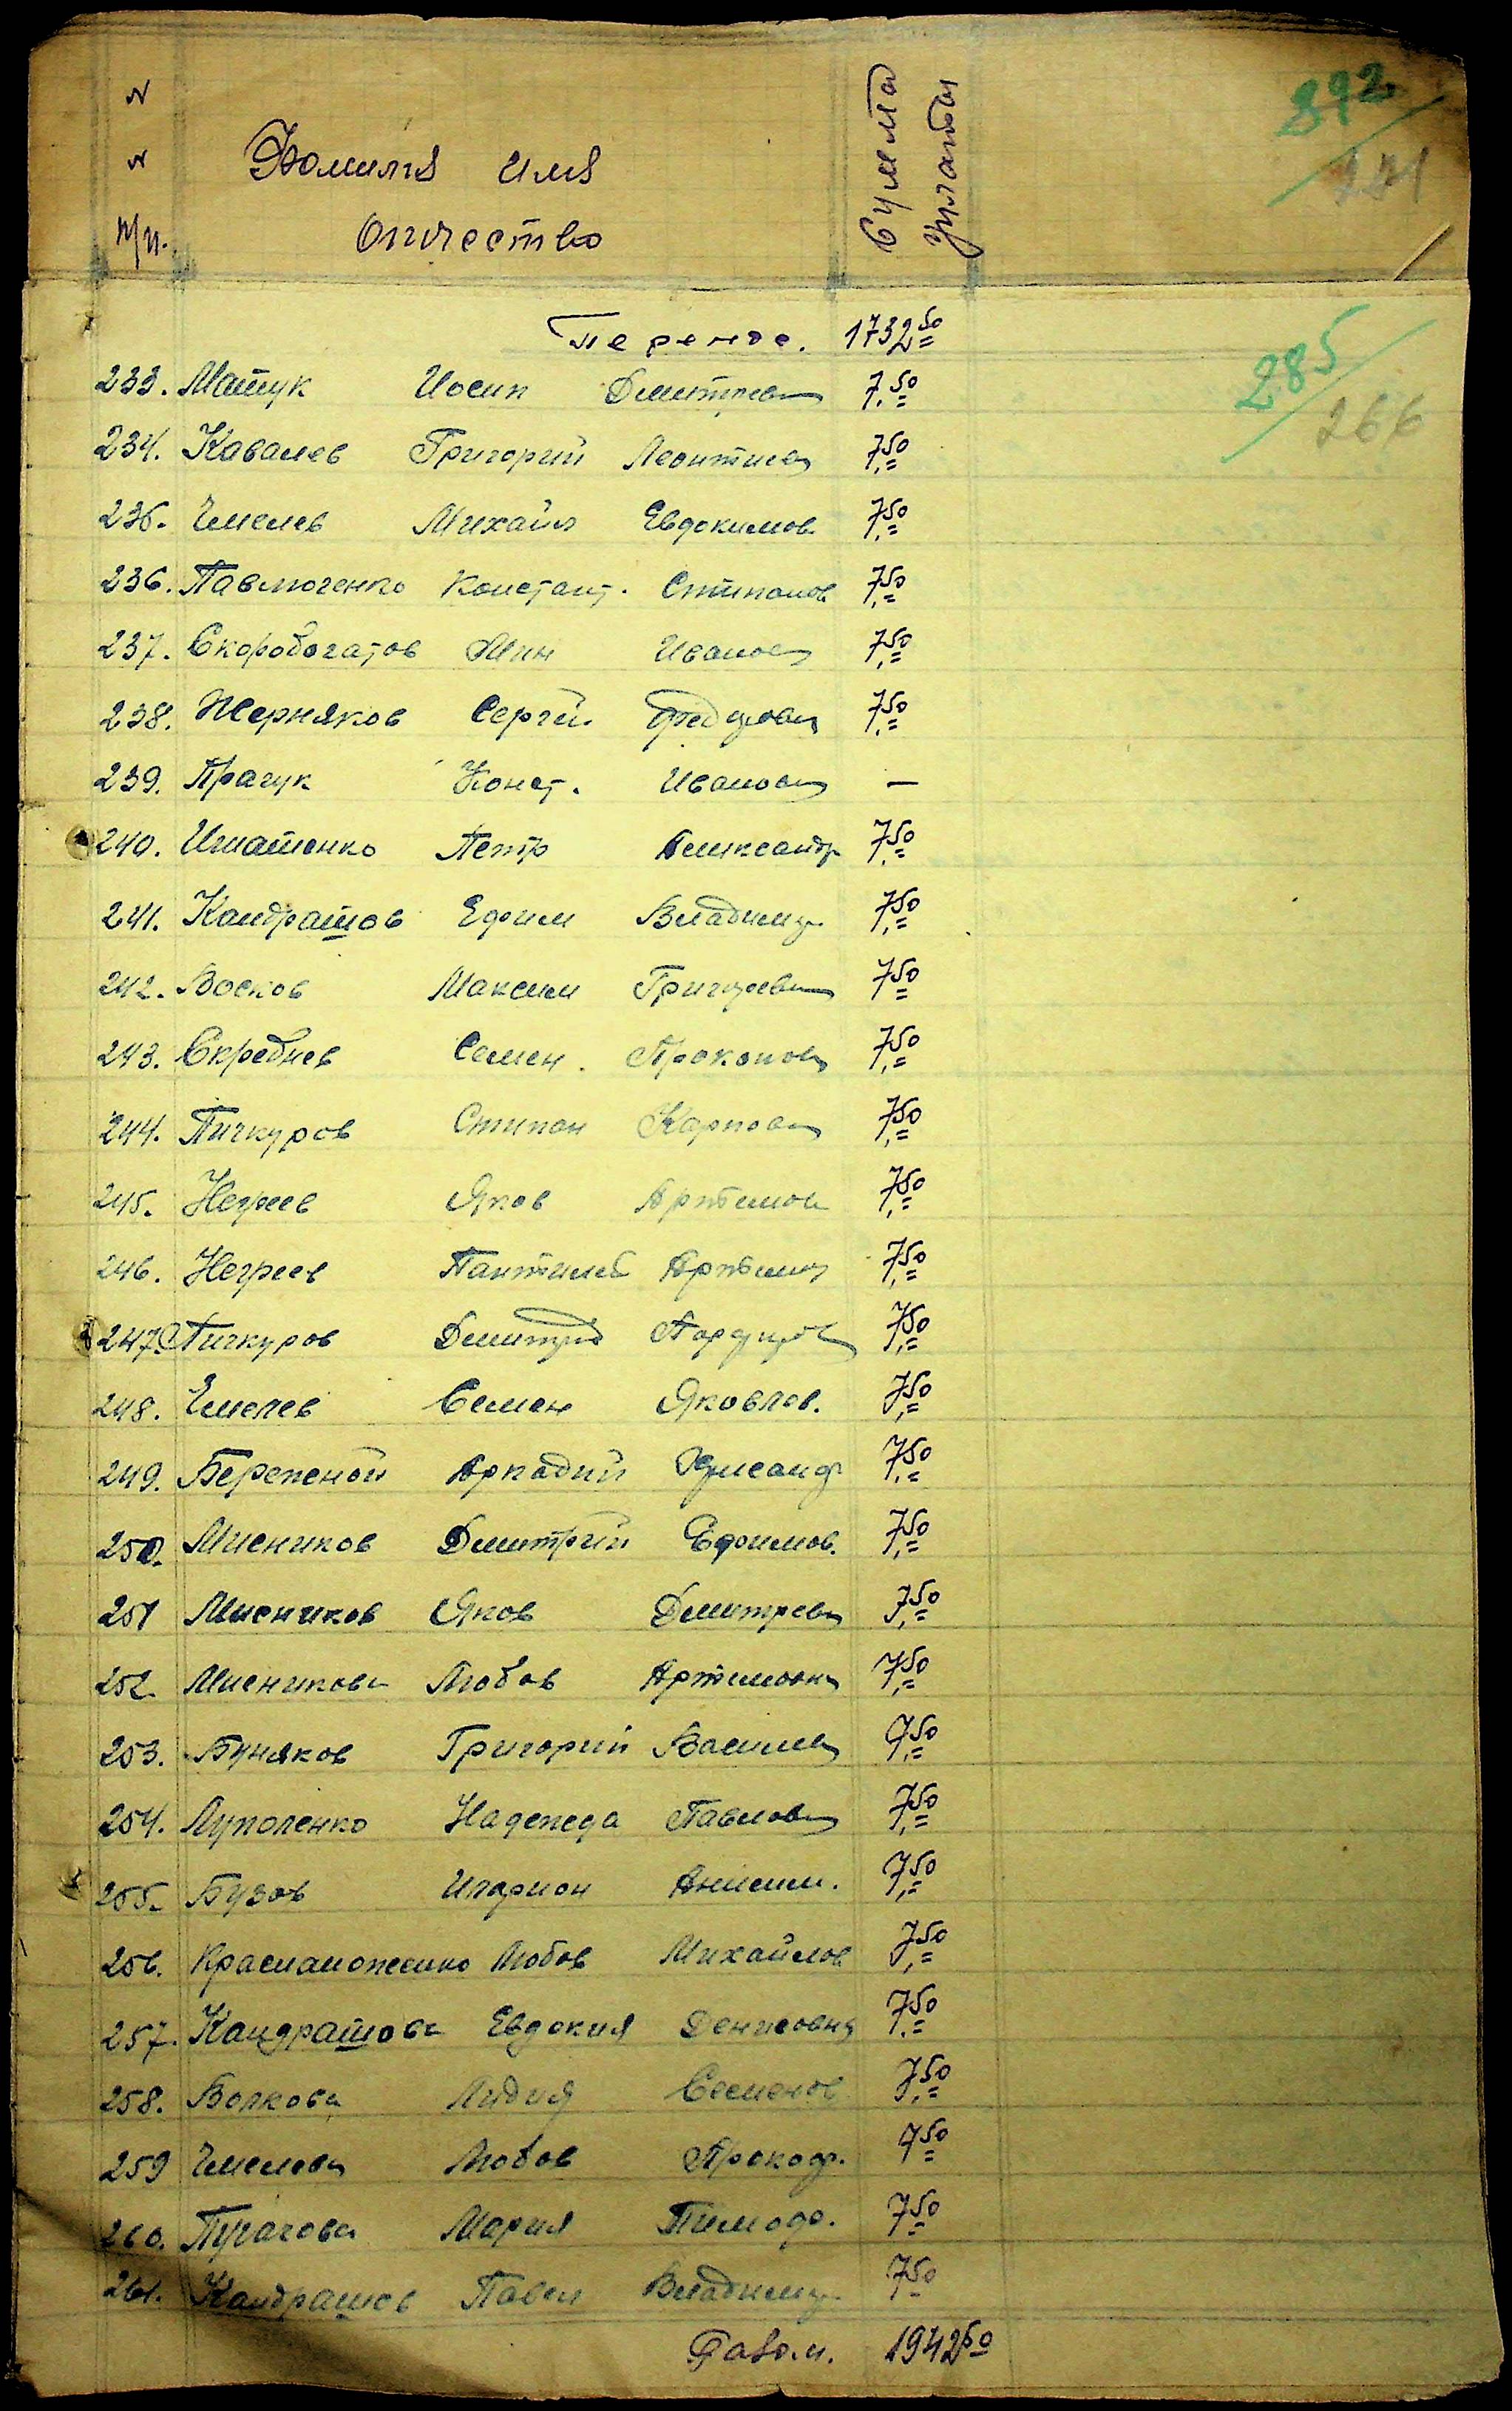 N
N
п/п.
Фомилия имя
Отчество
Сумма
уплаты
892
285
266
Перенос. 1732 50
233. Матук Иосип Дмитрев 7,50
234. Кавалев Григорий Леонтиев 7,50
235. Чмелев Михаил Евдокимов 7,50
236. Павлюченко Констант. Стипанов 7,50
237. Скоробогатов Мин Иванов 7,50
238. Жерняков Сергей Федорович 7,50
239. Прачук Конст. Иванович —
240. Игнатенко Петр Аликсандр 7,50
241. Кандрашов Ефим Владимир. 7,50
242. Восков Максим Григорев 7,50
243. Скребнев Семен Прокопов 7,50
244. Пичкуров Стипан Карпович 7,50
245. Негреев Яков Артемов 7,50
246. Негреев Пантилей Артемов 7,50
247. Пичкуров Дмитрий 7,50
248. Емелев Семен Яковлев. 7,50
249. Береженой Аркадий 7,50
250. Мисников Дмитрий Ефимов. 7,50
251 Мисников Яков Дмитрев 7,50
252. Мисникова Любов Артимовна 7,50
253. Буняков Григорий Василев 7,50
254. Луполенко Надежда Павлов 7,50
255. Бузов Иларион Анисим. 7,50
256. Краснаноженко Любов Михайлов 7,50
257. Кандрашова Евдокия Денисовна 7,50
258. Волкова Лидия Семенов 7,50
259 Чмелева Любов Прокоф. 7,50
260. Пугачова Мария Тимофе. 7,50
261. Кандрашов Павел Владимир. 7,50
Разом. 1942 50